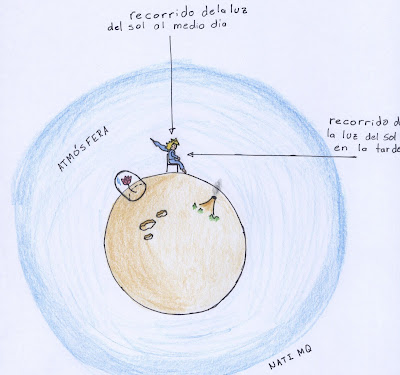 recorrido dela luz
del sol al medio día
recorrido d
la luz del sol
en la tarde
ATMÓSFERA
NATI MQ